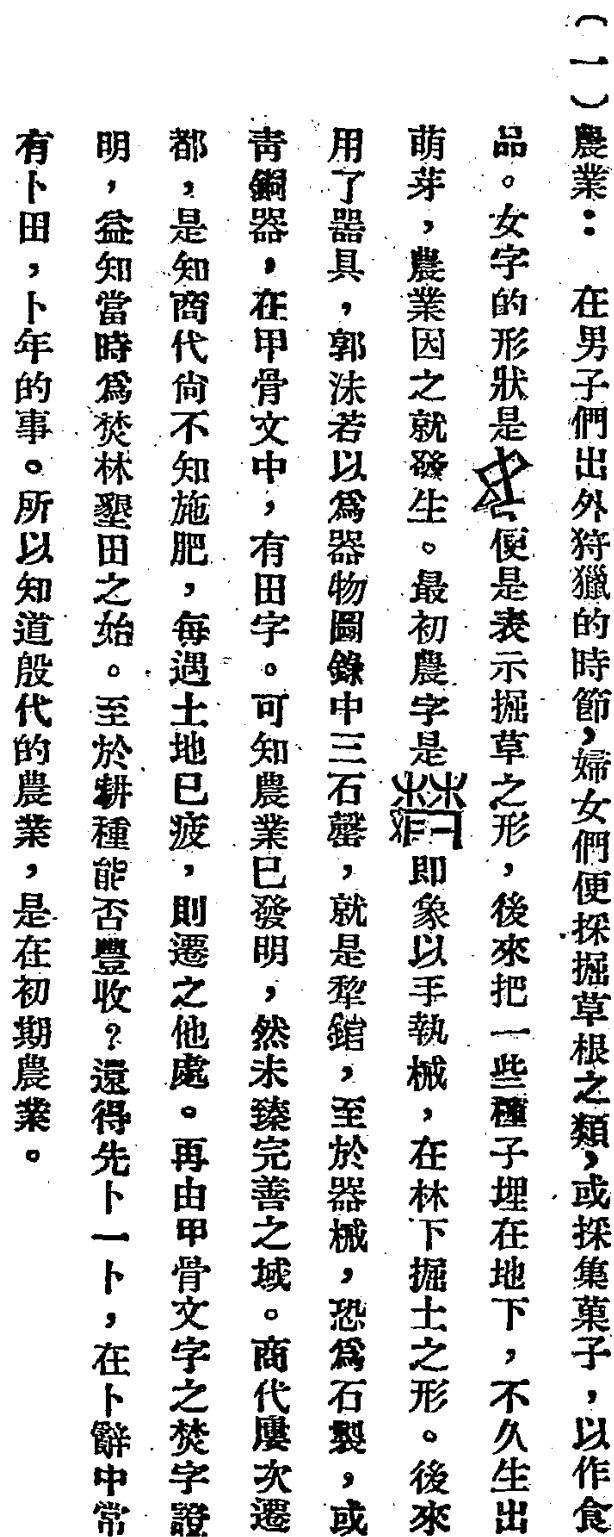 （一）農業：　在男子們出外狩獵的時節，婦女們便採掘草根之類，或採集菓子，以作食
品。女字的形狀是便是表示掘草之形，後來把一些種子埋在地下，不久生出
萌芽，農業因之就發生。最初農字是即象以手執械，在林下掘土之形。後來
用了器具，郭沫若以爲器物圖錄中三石罄，就是犂錧，至於器械，恐爲石製，或
靑銅器，在甲骨文中，有田字。可知農業已發明，然未臻完善之域。商代屢次遷
都，是知商代尙不知施肥，每遇土地已疲，則遷之他處。再由甲骨文字之焚字證
明，益知當時爲焚林墾田之始。至於耕種能否豐收？還得先卜一卜，在卜辭中常
有卜田，卜年的事。所以知道殷代的農業，是在初期農業。